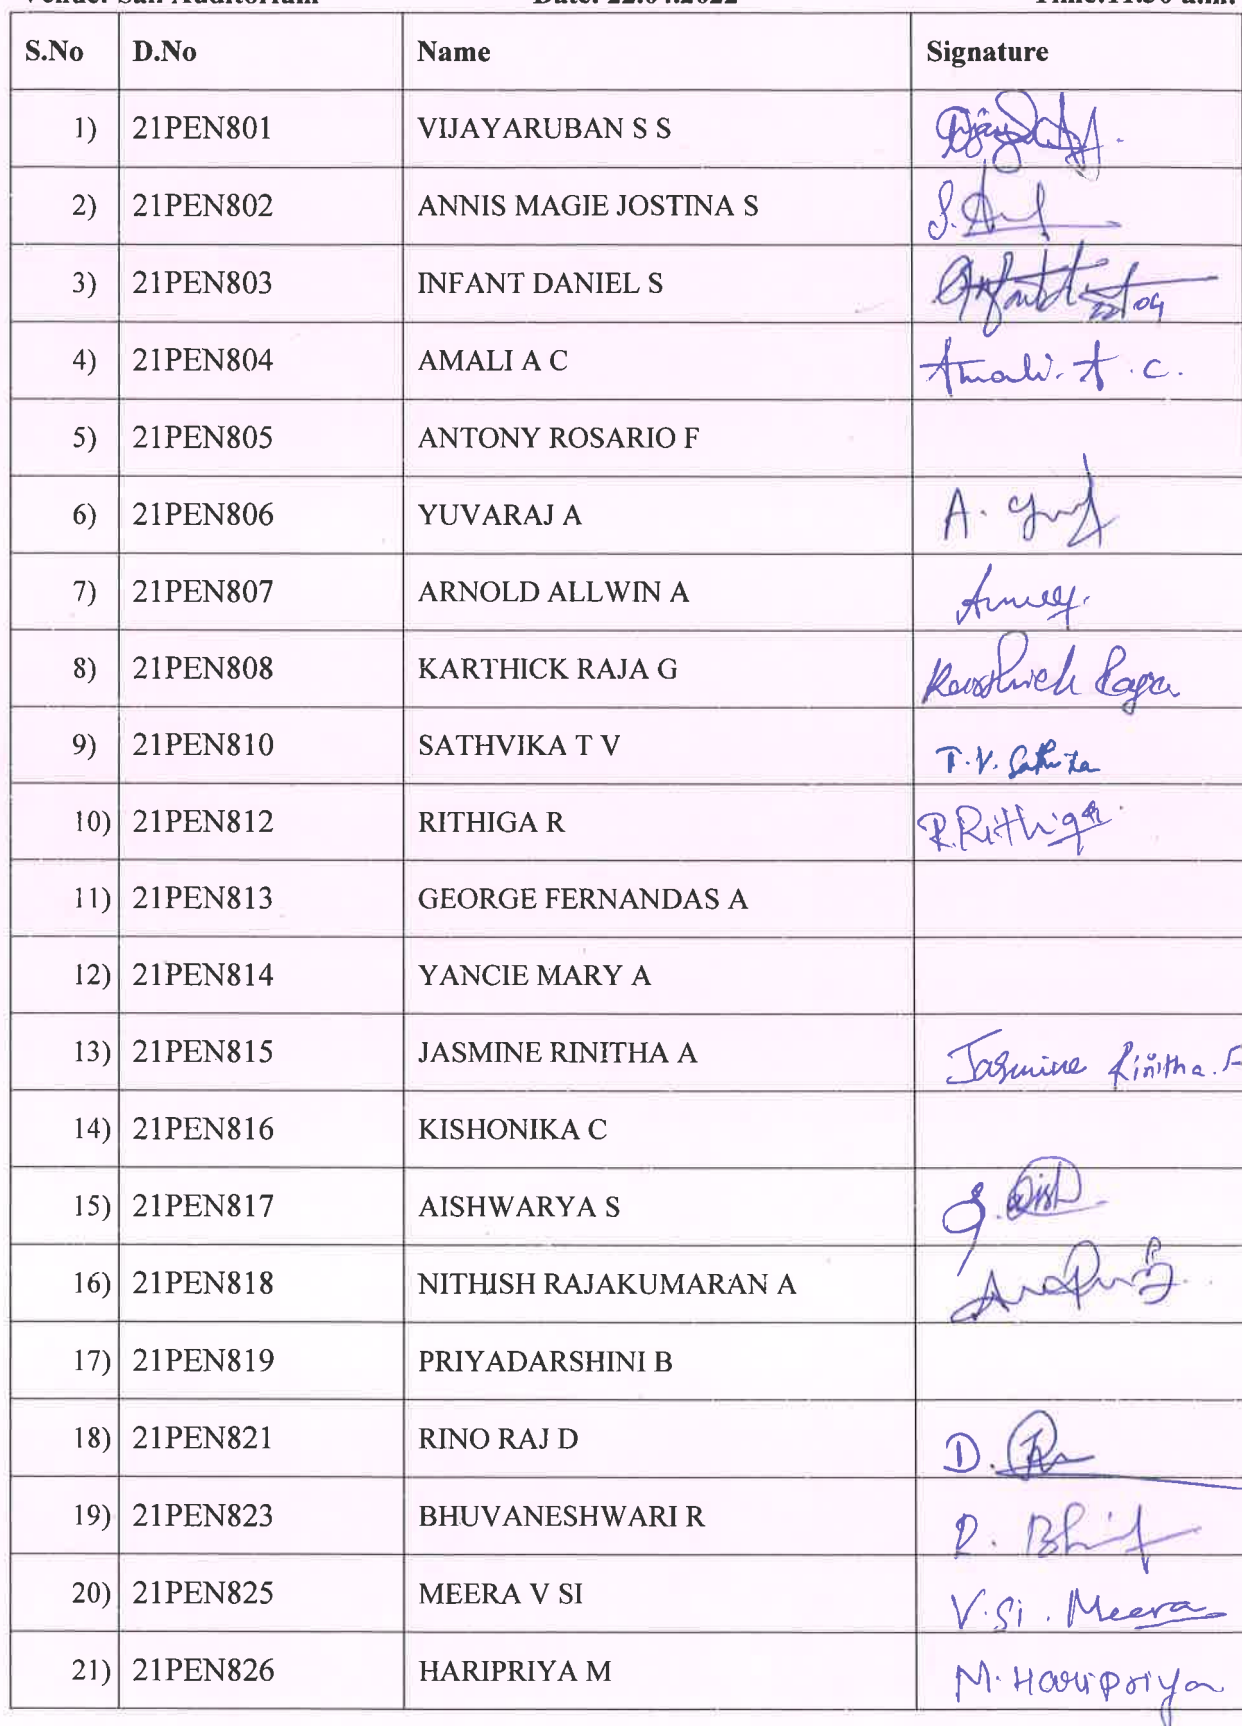 Venue: Sail Auditorium Date: 22.04.2022 Time:11.30 a.m.
S.No D.No Name Signature
1) 21PEN801 VIJAYARUBAN S S
2) 21PEN802 ANNIS MAGIE JOSTINA S S.
3) 21PEN803 INFANT DANIEL S 22/04
4) 21PEN804 AMALI A C Amali. A. C.
5) 21PEN805 ANTONY ROSARIO F
6) 21PEN806 YUVARAJ A A.
7) 21PEN807 ARNOLD ALLWIN A
8) 21PEN808 KARTHICK RAJA G Karthick Raja
9) 21PEN810 SATHVIKA T V T.V. Sathvika
10) 21PEN812 RITHIGA R R.Rithiga
11) 21PEN813 GEORGE FERNANDAS A
12) 21PEN814 YANCIE MARY A
13) 21PEN815 JASMINE RINITHA A Jasmine Rinitha. A
14) 21PEN816 KISHONIKA C
15) 21PEN817 AISHWARYA S S. Aish
16) 21PEN818 NITHISH RAJAKUMARAN A
17) 21PEN819 PRIYADARSHINI B
18) 21PEN821 RINO RAJ D D.
19) 21PEN823 BHUVANESHWARI R R.
20) 21PEN825 MEERA V SI V.Si. Meera
21) 21PEN826 HARIPRIYA M M. Haripriya